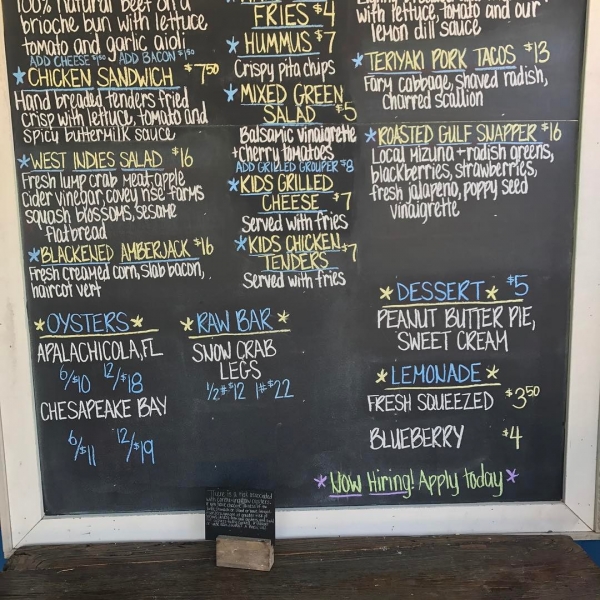 100% natural beef on a
brioche bun with lettuce
tomato and garlic aioli
ADD CHEESE $1.50 ADD BACON $1.50
*CHICKEN SANDWICH $7.50
Hand breaded tenders fried
crisp with lettuce, tomato and
spicy buttermilk sauce
*WEST INDIES SALAD $16
Fresh lump crab meat, apple
cider vinegar, covey rise farms
squash blossoms, sesame
flatbread
*BLACKENED AMBERJACK $16
Fresh creamed corn, slab bacon,
haircot vert
*OYSTERS*
APALACHICOLA, FL
6/$10 12/$18
CHESAPEAKE BAY
6/$11 12/$19
FRIES $4
*HUMMUS $7
Crispy pita chips
*MIXED GREEN
SALAD $5
Balsamic vinaigrette
+cherry tomatoes
ADD GRILLED GROUPER $8
*KIDS GRILLED
CHEESE $7
Served with fries
*KIDS CHICKEN
TENDERS $7
Served with fries
*RAW BAR*
SNOW CRAB
LEGS
1/2# $12 1# $22
with lettuce, tomato and our
lemon dill sauce
*TERIYAKI PORK TACOS $13
Farm cabbage, shaved radish,
charred scallion
*ROASTED GULF SNAPPER $16
Local Mizuna + radish greens,
blackberries, strawberries,
fresh jalapeno, poppy seed
vinaigrette
*DESSERT* $5
PEANUT BUTTER PIE,
SWEET CREAM
*LEMONADE*
FRESH SQUEEZED $3.50
BLUEBERRY $4
*Now Hiring! Apply today*
There is a risk associated